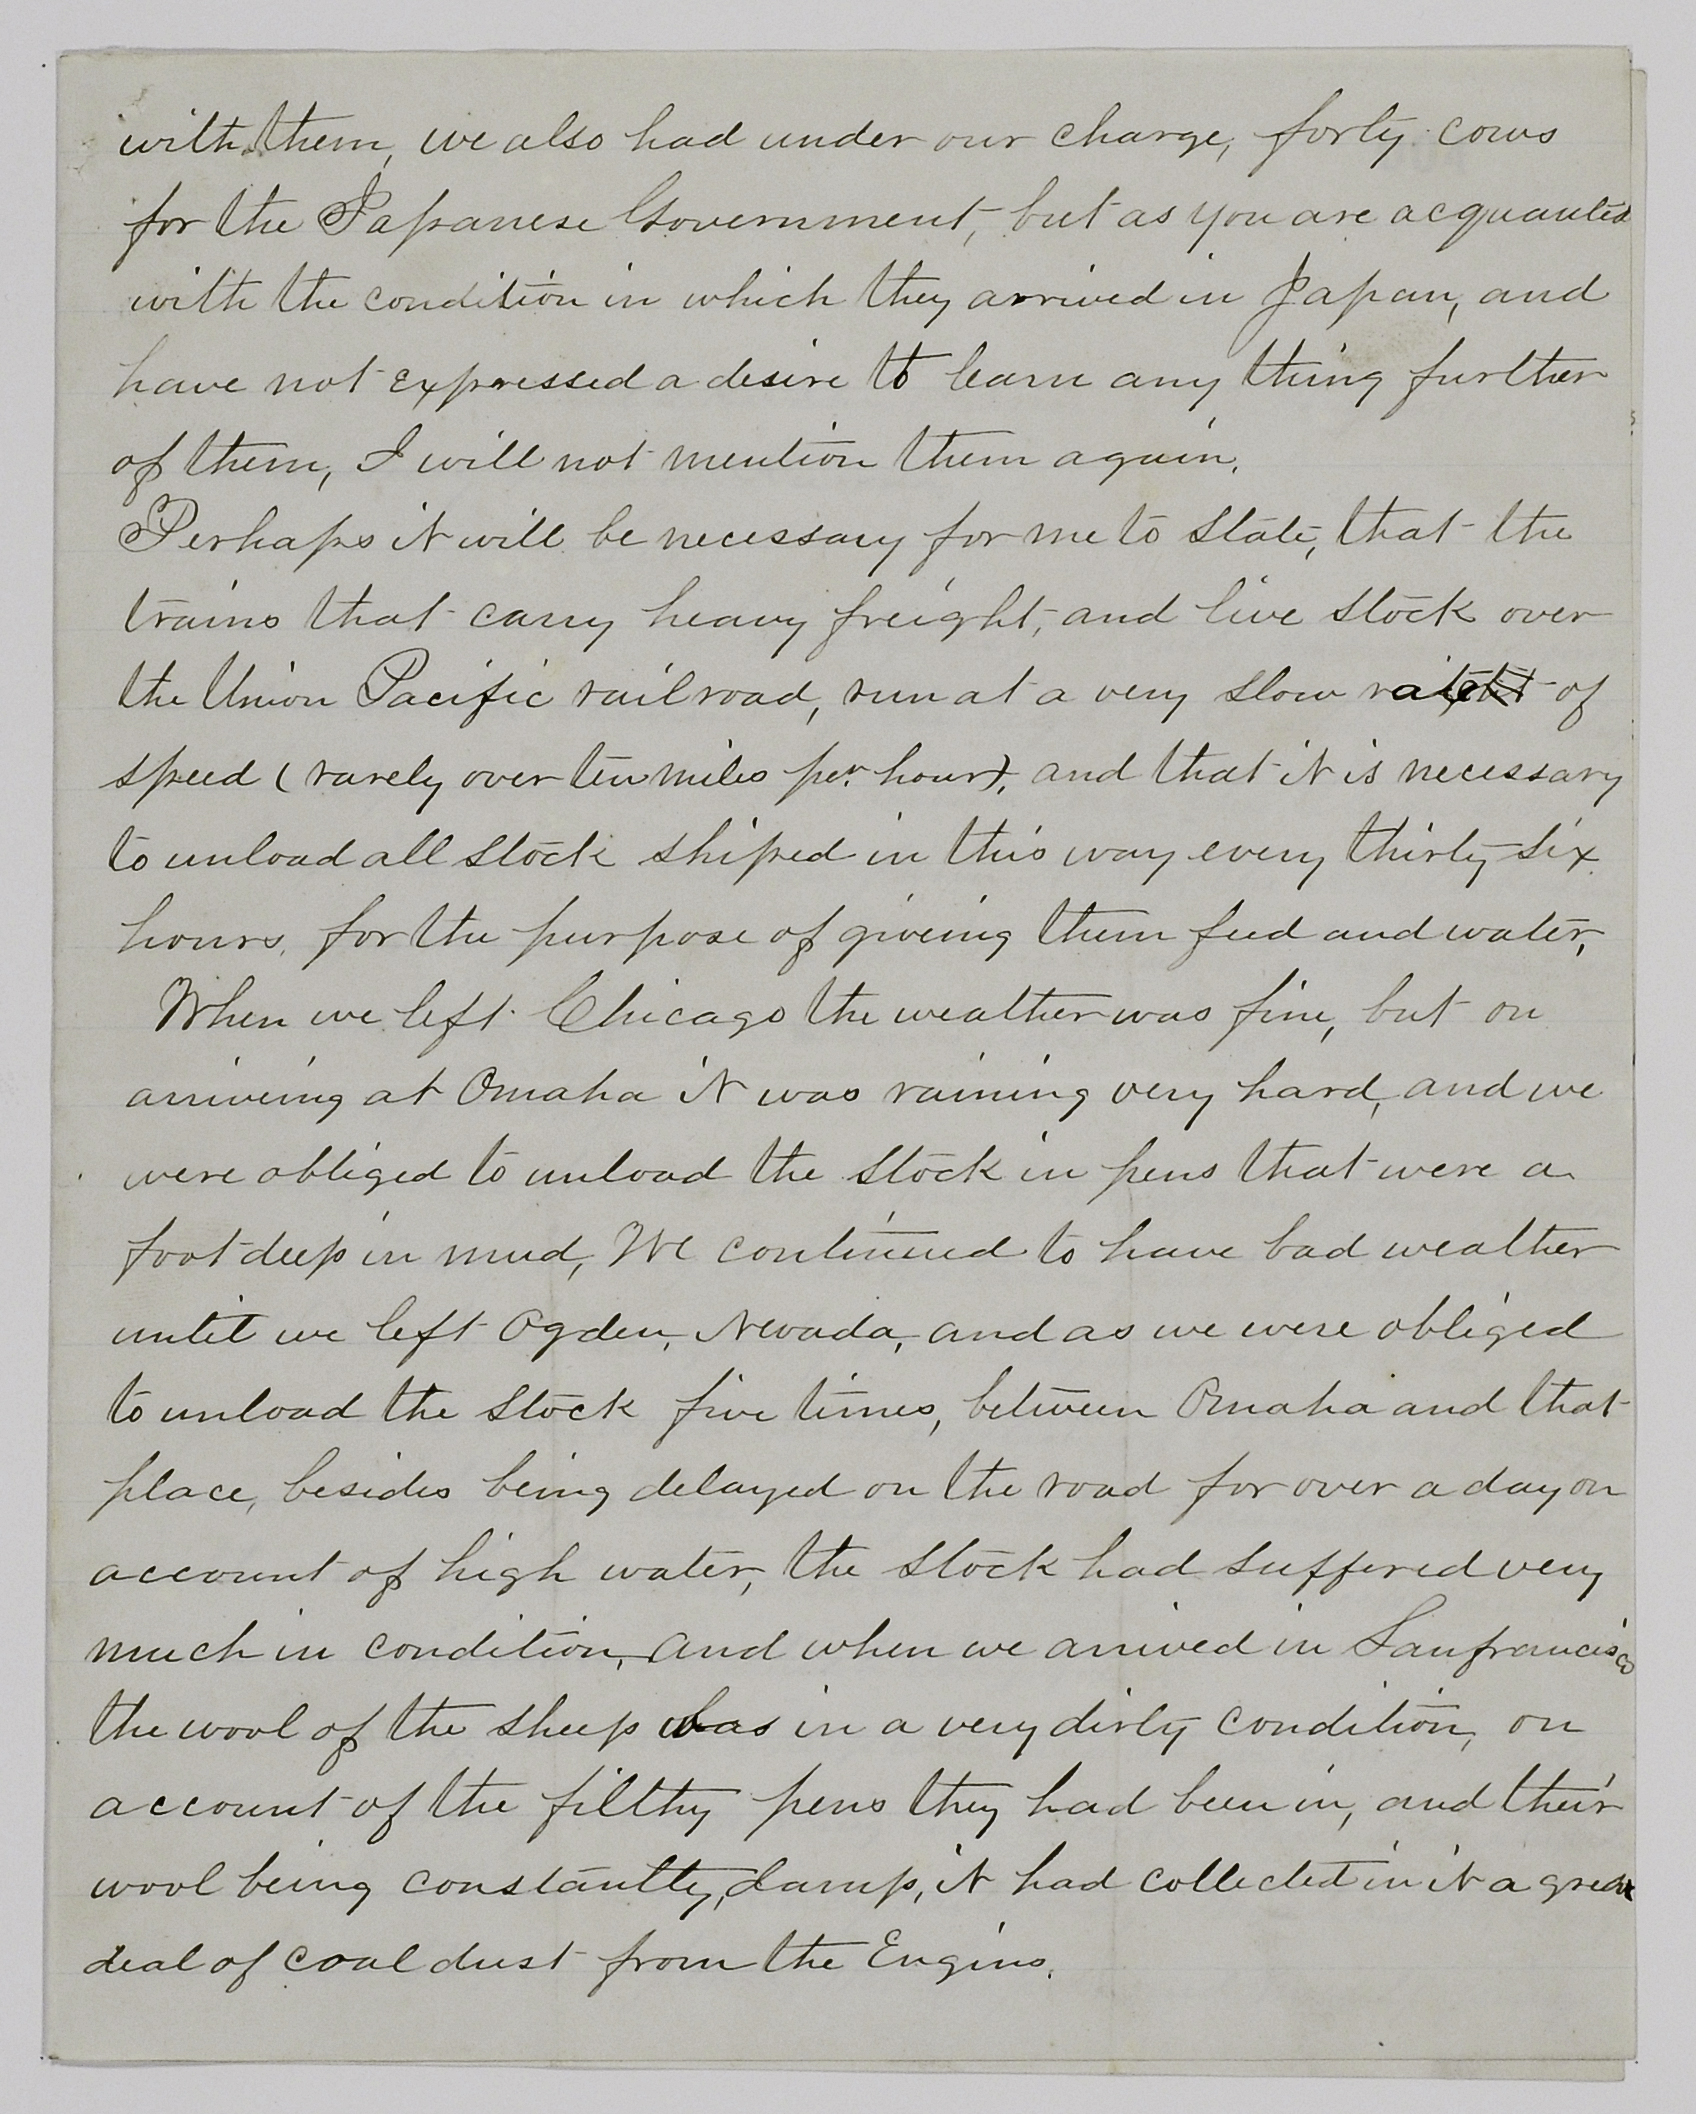 with them, we also had under our charge, forty cows
for the Japanese Government, but as you are acquanted
with the condition in which they arrived in Japan, and
have not expressed a desire to learn any thing further
of them, I will not mention them again.
Perhaps it will be necessary for me to state, that the
trains that carry heavy freight, and live stock over
the Union Pacific railroad, run at a very slow rate of
speed (rarely over ten miles per. hour), and that it is necessary
to unload all stock shiped in this way every thirty-six
hours, for the purpose of giveing them feed and water,
When we left Chicago the weather was fine, but on
arriveing at Omaha it was raining very hard, and we
were obliged to unload the stock in pens that were a
foot deep in mud, We continued to have bad weather
until we left Ogden, Nevada, and as we were obliged
to unload the stock five times, between Omaha and that
place, besides being delayed on the road for over a day on
account of high water, the stock had suffered very
much in condition, and when we arrived in Sanfrancisco
the wool of the sheep was in a very dirty condition, on
account of the filthy pens they had been in, and their
wool being constantly, damp, it had collected in it a great
deal of coal dust from the Engins.